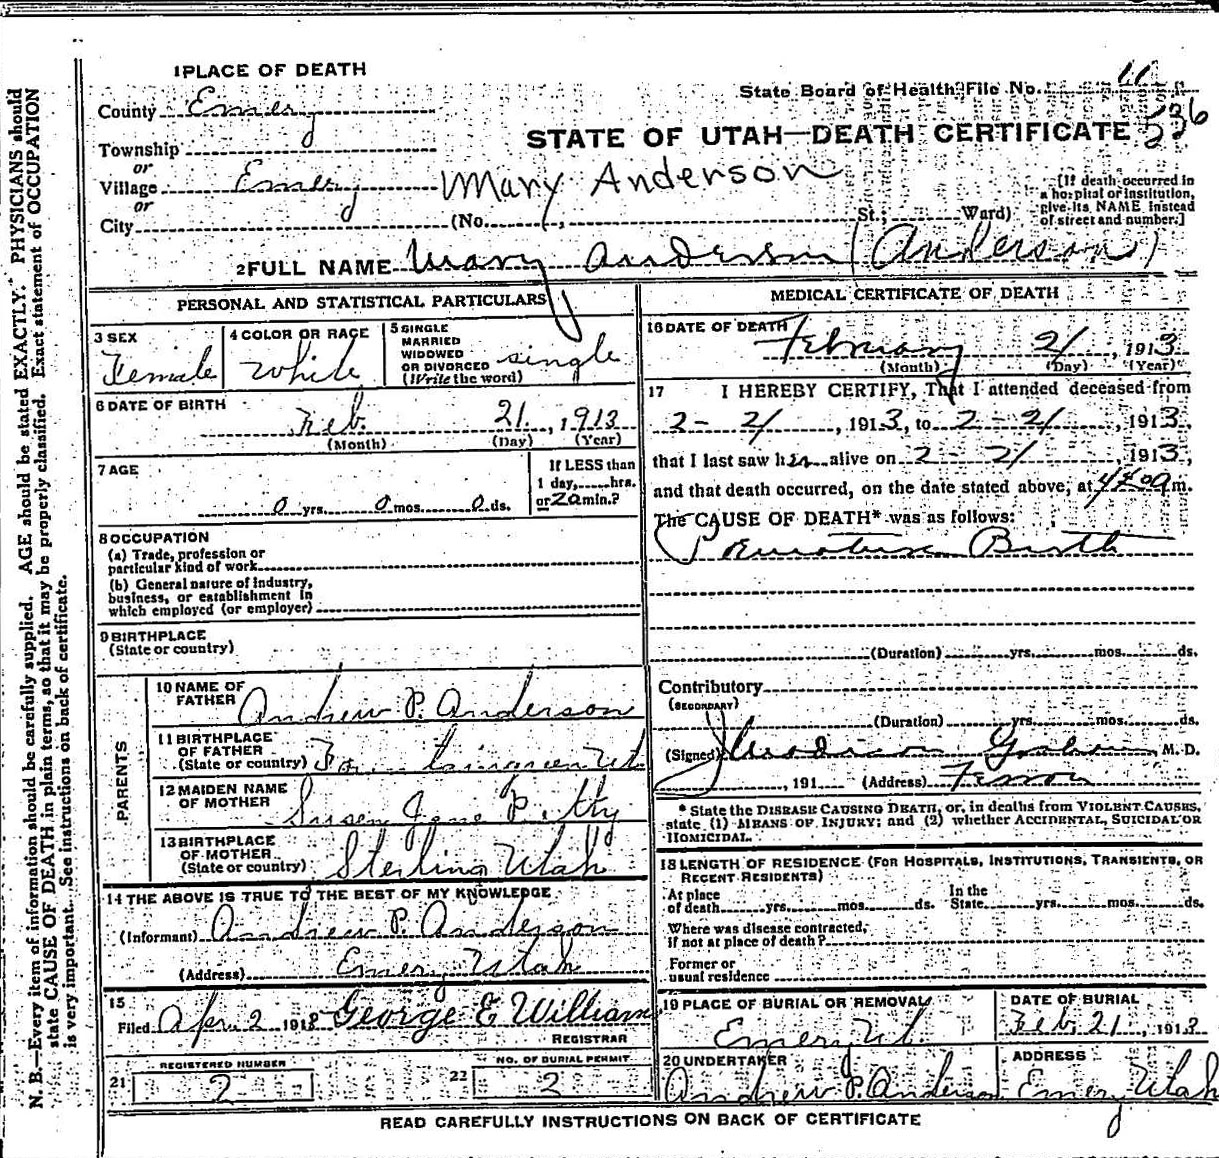 1 PLACE OF DEATH
County Emery
State Board of Health File No. 11
536
STATE OF UTAH—DEATH CERTIFICATE
Township
or
Village Emery
or
City
Mary Anderson
(No. , St.; Ward)
[If death occurred in
a hospital or institution,
give its NAME instead
of street and number.]
2 FULL NAME Mary Anderson (Anderson)
PERSONAL AND STATISTICAL PARTICULARS
3 SEX
Female
4 COLOR OR RACE
White
5 SINGLE
MARRIED
WIDOWED
OR DIVORCED
(Write the word)
single
6 DATE OF BIRTH
Feb. 21, 1913
(Month) (Day) (Year)
7 AGE
0 yrs. 0 mos. 0 ds.
If LESS than
1 day, hrs.
or 20 min.?
8 OCCUPATION
(a) Trade, profession or
particular kind of work
(b) General nature of industry,
business, or establishment in
which employed (or employer)
9 BIRTHPLACE
(State or country)
PARENTS
10 NAME OF
FATHER
Andrew P. Anderson
11 BIRTHPLACE
OF FATHER
(State or country)
Ut
12 MAIDEN NAME
OF MOTHER
Susen Jane
13 BIRTHPLACE
OF MOTHER
(State or country)
Sterling Utah
14 THE ABOVE IS TRUE TO THE BEST OF MY KNOWLEDGE
(Informant) Andrew P. Anderson
(Address) Emery Utah
15
Filed Apr. 2 1913 George E William
REGISTRAR
REGISTERED NUMBER
21 2
NO. OF BURIAL PERMIT
22 2
MEDICAL CERTIFICATE OF DEATH
16 DATE OF DEATH
February 21, 1913
(Month) (Day) (Year)
17 I HEREBY CERTIFY, That I attended deceased from
2- 21, 1913, to 2-21, 1913,
that I last saw her alive on 2-21, 1913,
and that death occurred, on the date stated above, at m.
The CAUSE OF DEATH* was as follows:
Premature Birth
(Duration) yrs. mos. ds.
Contributory
(SECONDARY)
(Duration) yrs. mos. ds.
(Signed) M. D.
, 191 (Address) Ferron
* State the DISEASE CAUSING DEATH, or, in deaths from VIOLENT CAUSES,
state (1) MEANS OF INJURY; and (2) whether ACCIDENTAL, SUICIDAL OR
HOMICIDAL.
18 LENGTH OF RESIDENCE (FOR HOSPITALS, INSTITUTIONS, TRANSIENTS, OR
RECENT RESIDENTS)
At place
of death yrs. mos. ds.
In the
State yrs. mos. ds.
Where was disease contracted,
if not at place of death?
Former or
usual residence
19 PLACE OF BURIAL OR REMOVAL
Emery Ut.
DATE OF BURIAL
Feb. 21, 1913
20 UNDERTAKER
Andrew P. Anderson
ADDRESS
Emery Utah
READ CAREFULLY INSTRUCTIONS ON BACK OF CERTIFICATE
N. B.—Every item of information should be carefully supplied. AGE should be stated EXACTLY. PHYSICIANS should
state CAUSE OF DEATH in plain terms, so that it may be properly classified. Exact statement of OCCUPATION
is very important. See instructions on back of certificate.